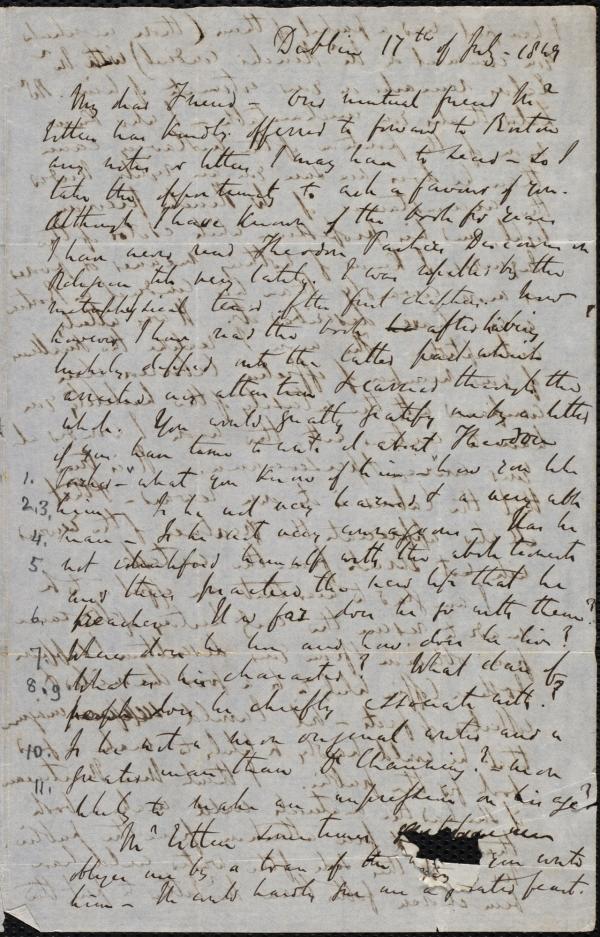 Dublin 17th of July - 1849
My dear Friend - Our mutual friend Mr
Estlin has kindly offered to forward to Boston
any notes or letters I may have to send - so I
take this opportunity to ask a favour of you.
Although I have known of the book for years
I have never read Theodore Parker's Discourse on
Religion till very lately. I was repelled by the
metaphysical tone of the first chapters. Now
however I have read the book after having
luckily dipped into the latter part which
arrested my attention & carried through the
whole. You would greatly gratify me by a letter
if you have time to write it about Theodore
1. Parker - what you know of him - how you like
2,3, him - Is he not very learned & a very able
4. man - Is he not very courageous - Has he
5. not identified himself with the abolitionists
and thus practised the new life that he
6. preaches. How far does he go with them?
7. Where does he live and how does he live?
8.9 What is his character? What class of
people does he chiefly associate with?
10. Is he not a more original writer and a
greater man than Dr Channing? - more
11. likely to make an impression on his age?
Mr Estlin sometimes
obliges me by a loan of the you write
him - He could hardly give me a greater feast.